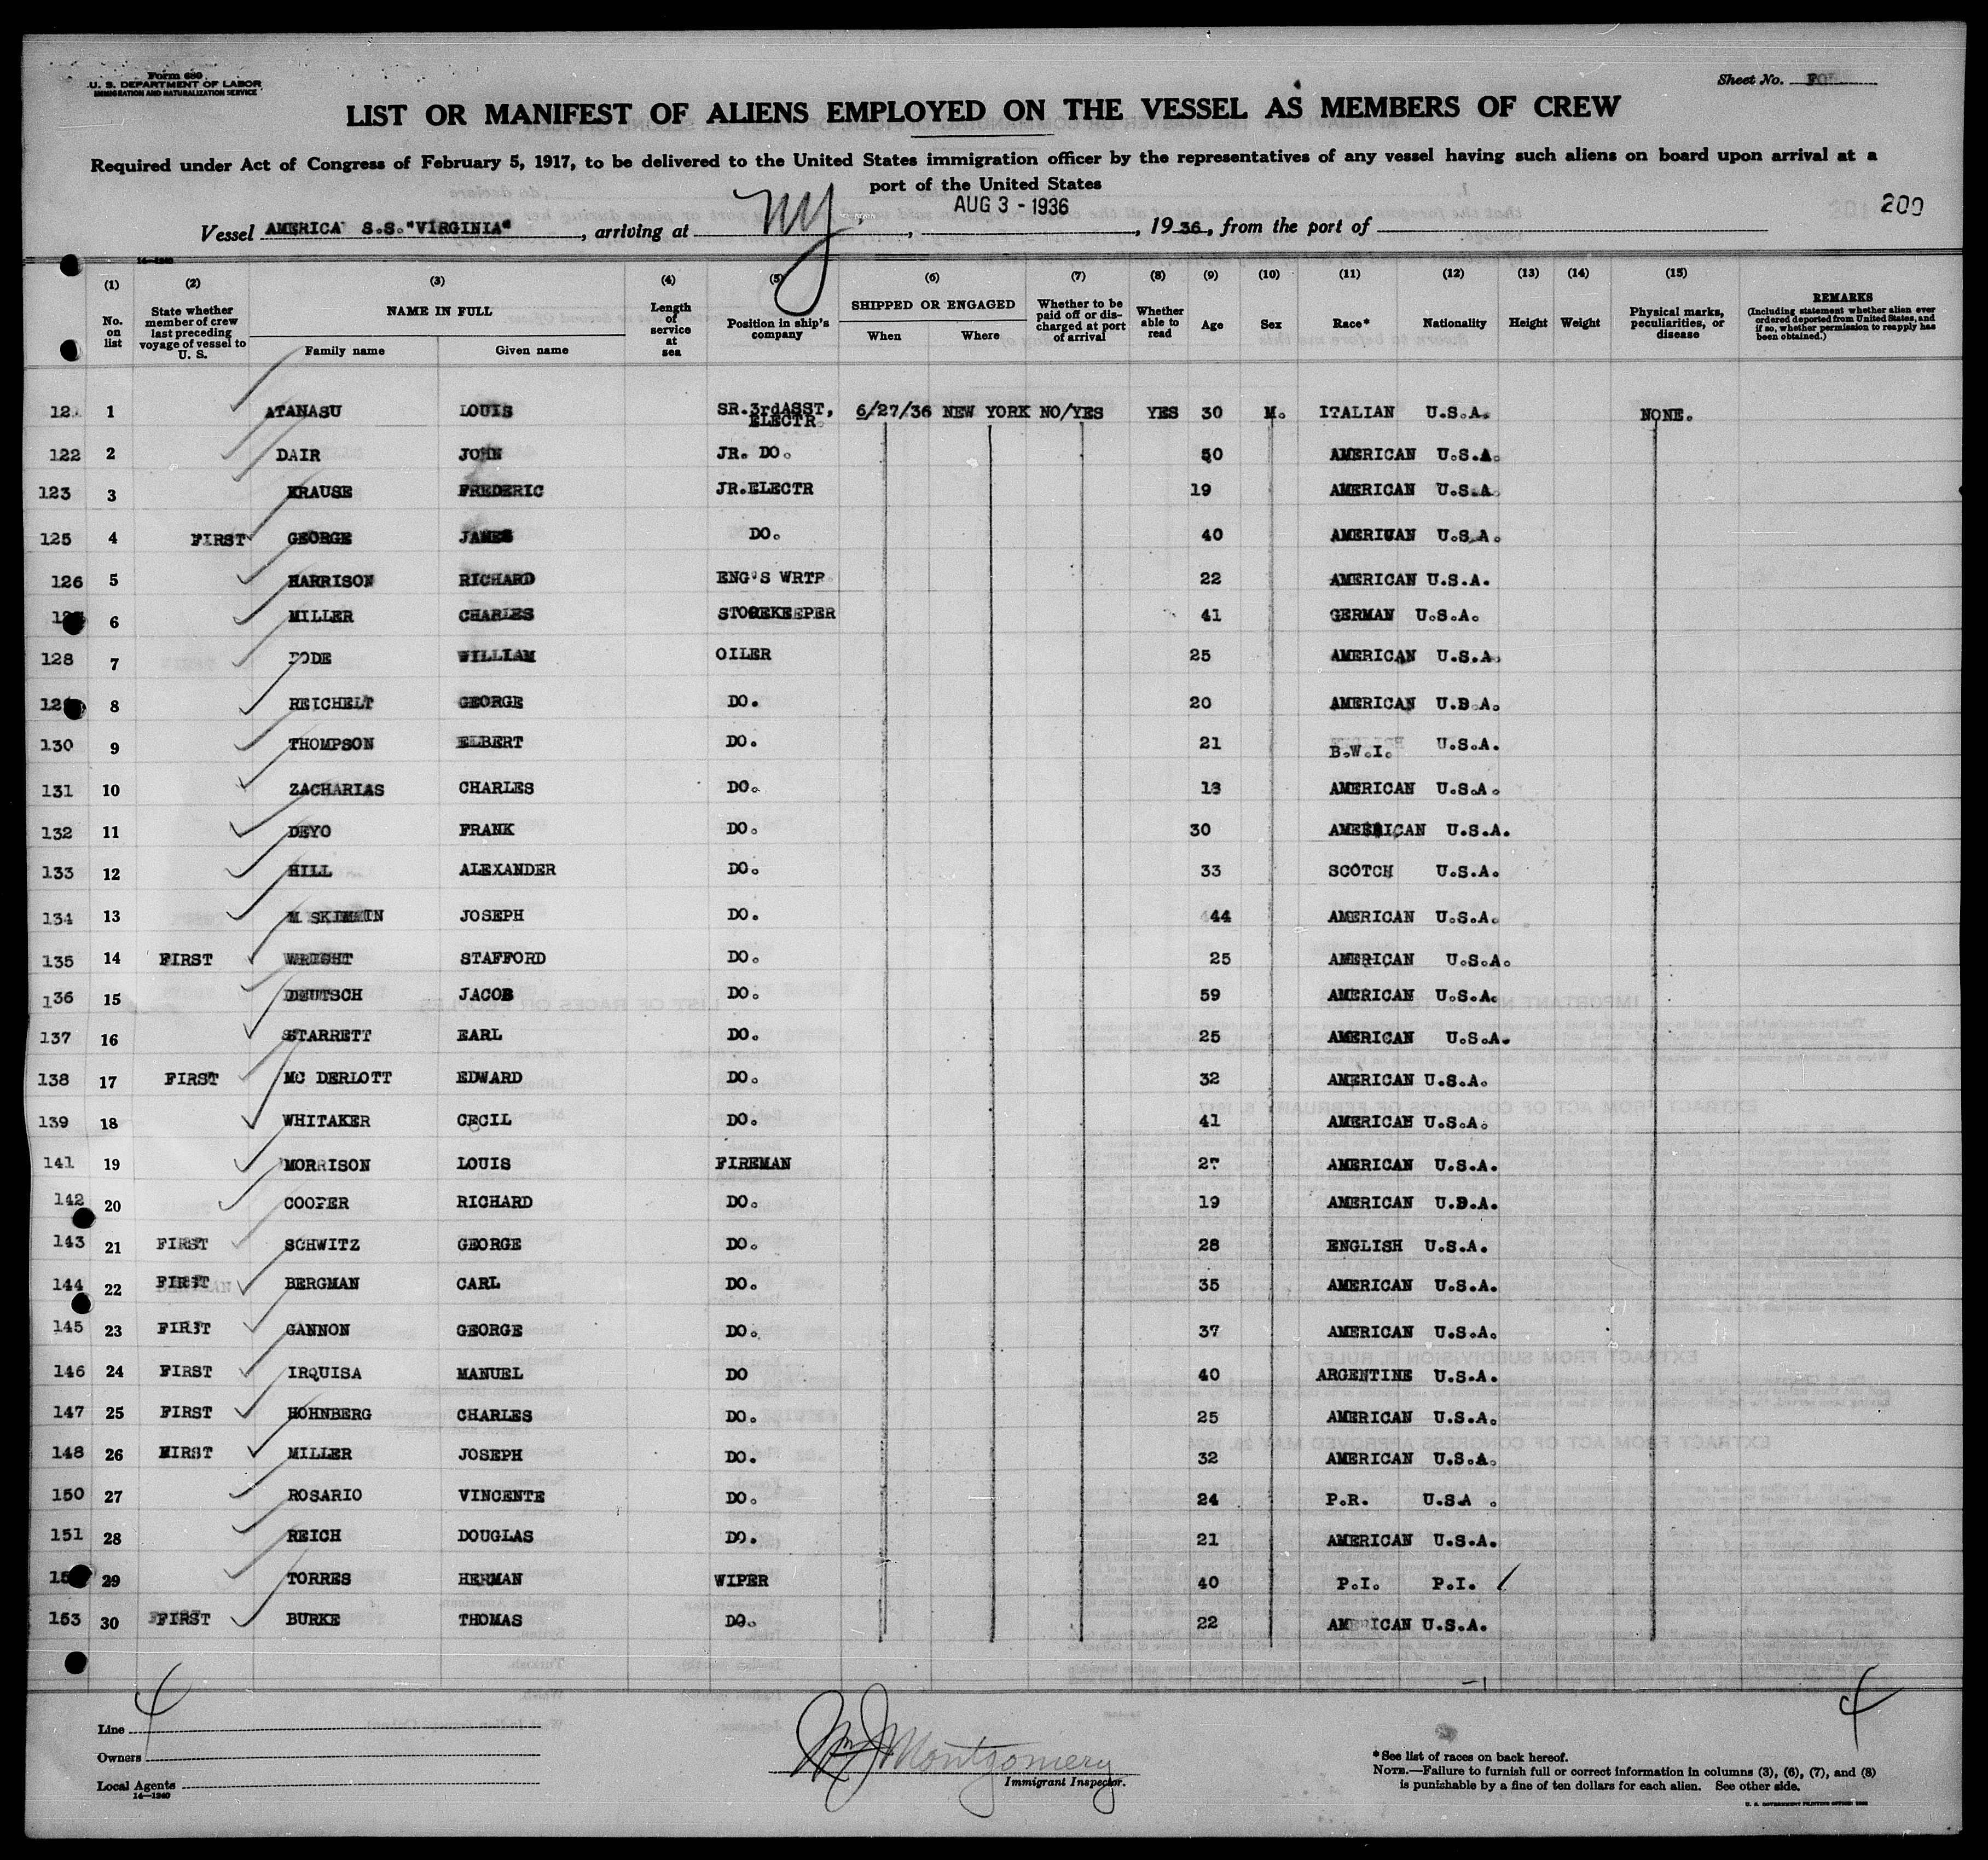 Form 680
U. S. DEPARTMENT OF LABOR
IMMIGRATION AND NATURALIZATION SERVICE
Sheet No.
LIST OR MANIFEST OF ALIENS EMPLOYED ON THE VESSEL AS MEMBERS OF CREW
Required under Act of Congress of February 5, 1917, to be delivered to the United States immigration officer by the representatives of any vessel having such aliens on board upon arrival at a
port of the United States
AUG 3 - 1936
200
Vessel AMERICA S.S. "VIRGINIA", arriving at NY, , 1936, from the port of
(1) (2) (3) (4) (5) (6) (7) (8) (9) (10) (11) (12) (13) (14) (15)
No. on list State whether member of crew last preceding voyage of vessel to U. S. NAME IN FULL Family name Given name Length of service at sea Position in ship's company SHIPPED OR ENGAGED When Where Whether to be paid off or discharged at port of arrival Whether able to read Age Sex Race* Nationality Height Weight Physical marks, peculiarities, or disease REMARKS (Including statement whether alien ever ordered deported from United States, and if so, whether permission to reapply has been obtained.)
12 1 ATANASU LOUIS SR.3rdASST, ELECTR. 6/27/36 NEW YORK NO/YES YES 30 M. ITALIAN U.S.A. NONE.
122 2 DAIR JOHN JR. DO. 50 AMERICAN U.S.A.
123 3 KRAUSE FREDERIC JR.ELECTR 19 AMERICAN U.S.A.
125 4 FIRST GEORGE JAMES DO. 40 AMERICAN U.S.A.
126 5 HARRISON RICHARD ENG'S WRTR 22 AMERICAN U.S.A.
6 MILLER CHARLES STOREKEEPER 41 GERMAN U.S.A.
128 7 WILLIAM OILER 25 AMERICAN U.S.A.
8 REICHELT GEORGE DO. 20 AMERICAN U.S.A.
130 9 THOMPSON ELBERT DO. 21 B.W.I. U.S.A.
131 10 ZACHARIAS CHARLES DO. AMERICAN U.S.A.
132 11 DEYO FRANK DO. 30 AMERICAN U.S.A.
133 12 HILL ALEXANDER DO. 33 SCOTCH U.S.A.
134 13 JOSEPH DO. 44 AMERICAN U.S.A.
135 14 FIRST WRIGHT STAFFORD DO. 25 AMERICAN U.S.A.
136 15 DEUTSCH JACOB DO. 59 AMERICAN U.S.A.
137 16 STARRETT EARL DO. 25 AMERICAN U.S.A.
138 17 FIRST MC DERLOTT EDWARD DO. 32 AMERICAN U.S.A.
139 18 WHITAKER CECIL DO. 41 AMERICAN U.S.A.
141 19 MORRISON LOUIS FIREMAN 27 AMERICAN U.S.A.
142 20 COOPER RICHARD DO. 19 AMERICAN U.S.A.
143 21 FIRST SCHWITZ GEORGE DO. 28 ENGLISH U.S.A.
144 22 FIRST BERGMAN CARL DO. 35 AMERICAN U.S.A.
145 23 FIRST GANNON GEORGE DO. 37 AMERICAN U.S.A.
146 24 FIRST IRQUISA MANUEL DO 40 ARGENTINE U.S.A.
147 25 FIRST HOHNBERG CHARLES DO. 25 AMERICAN U.S.A.
148 26 FIRST MILLER JOSEPH DO. 32 AMERICAN U.S.A.
150 27 ROSARIO VINCENTE DO. 24 P.R. U.S.A.
151 28 REICH DOUGLAS DO. 21 AMERICAN U.S.A.
29 TORRES HERMAN WIPER 40 P.I. P.I.
153 30 FIRST BURKE THOMAS DO. 22 AMERICAN U.S.A.
4 4
Line
Owners
Local Agents
14—1240
Montgomery
Immigrant Inspector.
*See list of races on back hereof.
NOTE.—Failure to furnish full or correct information in columns (3), (6), (7), and (8)
is punishable by a fine of ten dollars for each alien. See other side.